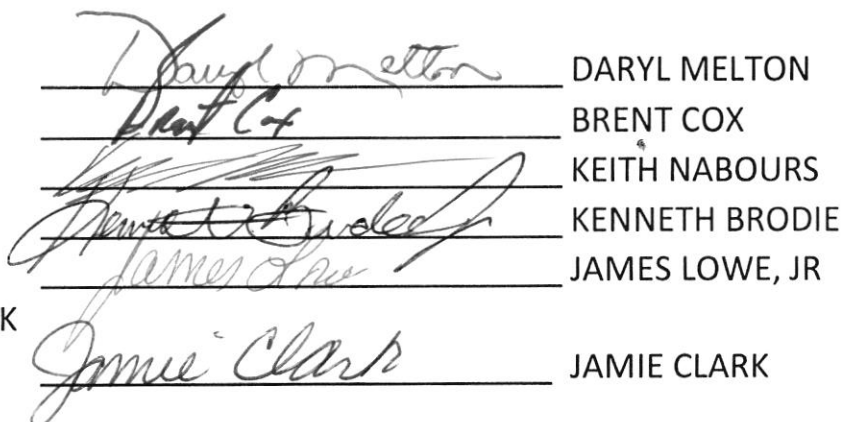 Daryl Melton DARYL MELTON
Brent Cox BRENT COX
KEITH NABOURS
KENNETH BRODIE
James Lowe JAMES LOWE, JR
K
Jamie Clark JAMIE CLARK